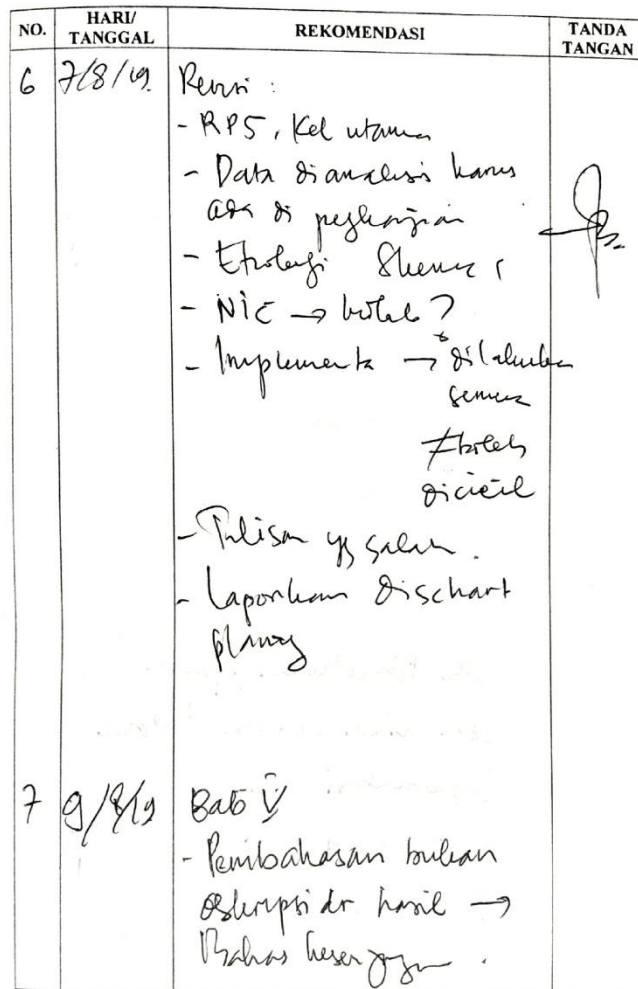 NO. HARI/ TANGGAL REKOMENDASI TANDA TANGAN
6 7/8/19. Revisi :
- RPS, Kel utama
- Data dianalisis harus
ada di pengkajian
- Etiologi Skema
- NIC → boleh ?
- Implementa → dilakukan
semua
≠ boleh
dicicil
- Tulisan yg salah.
- Laporkan Dischart
planng
7 9/8/19 Bab V
- Pembahasan bukan
deskripsi dr hasil →
Bahas kesenjangan.